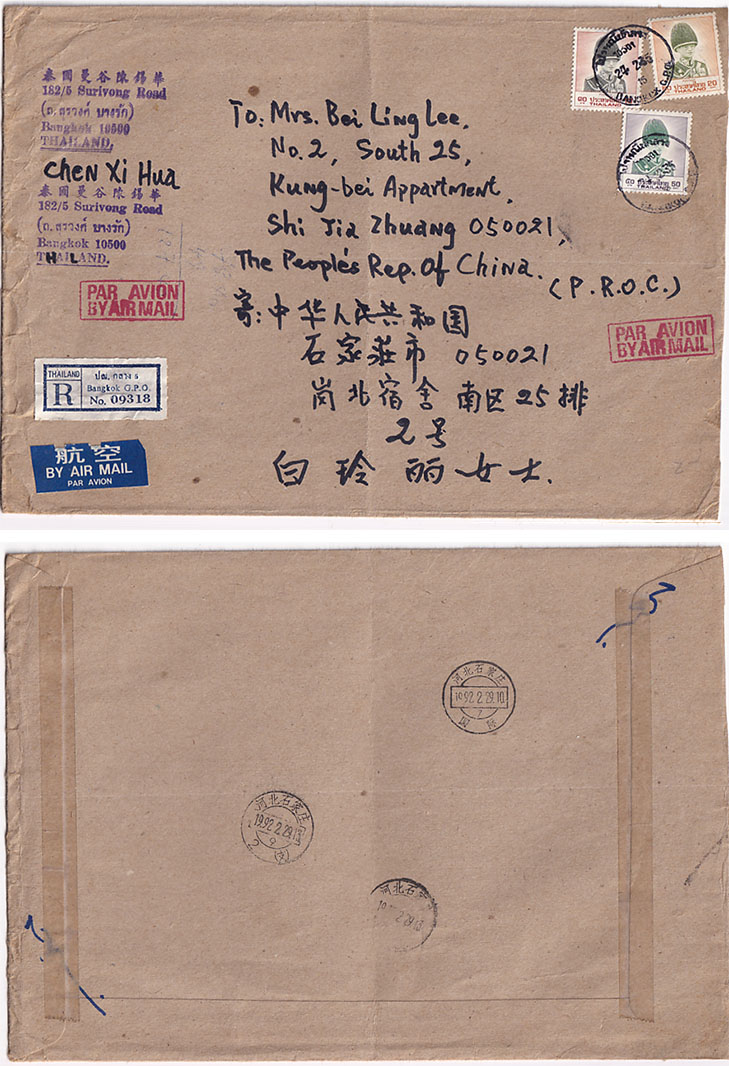 泰國曼谷陳錫華
182/5 Surivong Road
(ถ. สุรวงศ์ บางรัก)
Bangkok 10500
THAILAND.
Chen Xi Hua
泰國曼谷陳錫華
182/5 Surivong Road
(ถ. สุรวงศ์ บางรัก)
Bangkok 10500
THAILAND.
PAR AVION
BY AIR MAIL
THAILAND
R
ปณ. กลาง
Bangkok G.P.O.
No. 09318
航空
BY AIR MAIL
PAR AVION
To: Mrs. Bei Ling Lee.
No. 2, South 25,
Kung-bei Appartment,
Shi Jia Zhuang 050021,
The People's Rep. Of China.
(P.R.O.C.)
寄:中华人民共和国
石家莊市 050021
岗北宿舍南区25排
2号
白玲丽女士.
ประเทศไทย
THAILAND
ประเทศไทย 20
THAILAND
ประเทศไทย 50
10501
BANGKOK G.P.O.
PAR AVION
BY AIR MAIL
河北石家庄
1992.2.29.10
国际
河北石家庄
1992.2.29.13
河北石家庄
2.29.13